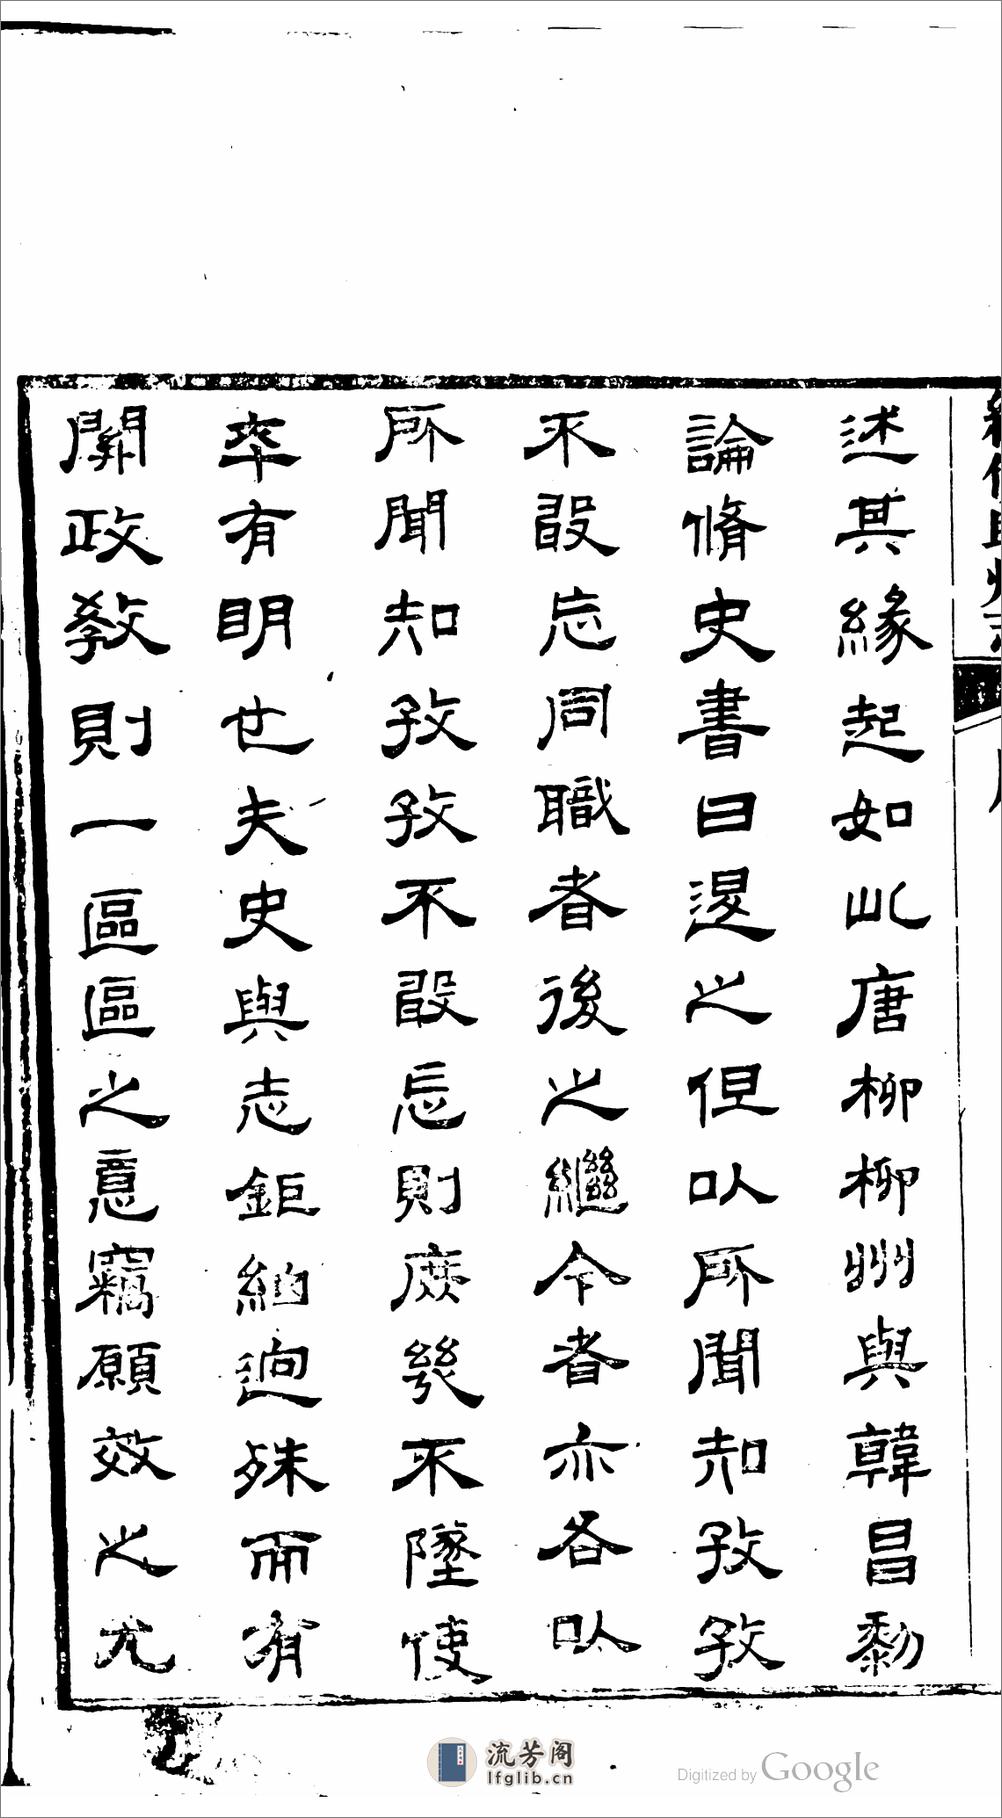 述其緣起如此唐柳柳州與韓昌黎
論脩史書曰退之但以所聞知孜孜
不敢忘同職者後之繼今者亦各以
所聞知孜孜不敢忘則庶幾不墜使
卒有明也夫史與志鉅細迥殊而有
關政教則一區區之意竊願效之尤
流芳阁
lfglib.cn
Digitized by Google